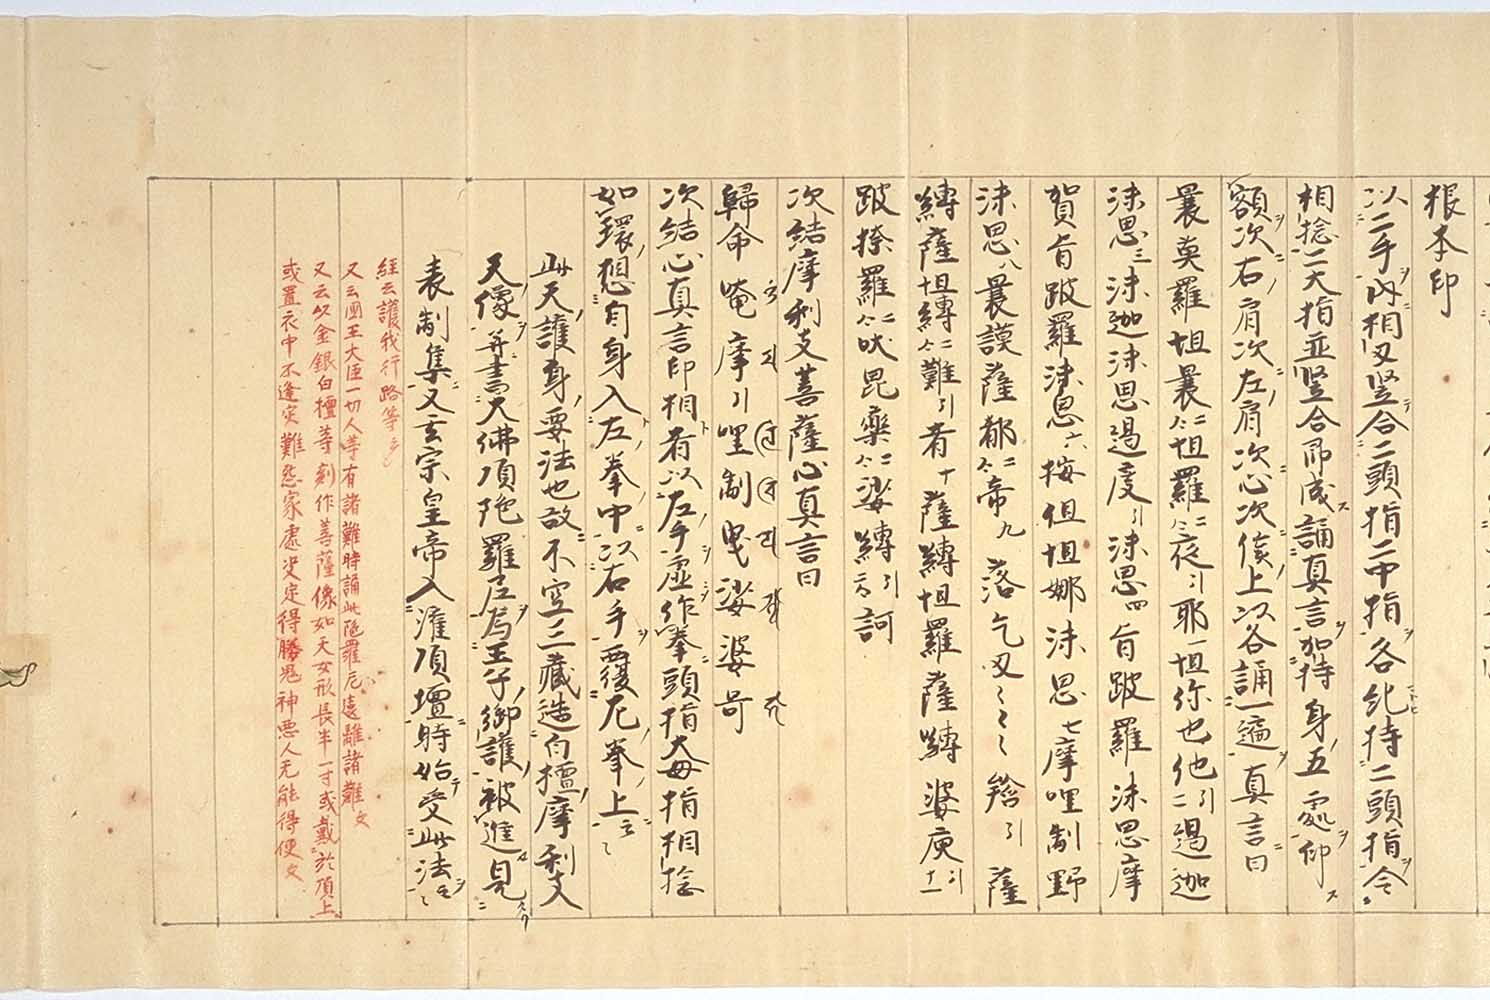 根本印
以二手内相叉竪合二頭指二中指各糺持二頭指令
相捻二大指並竪合即成誦真言加持身五處仰
額次右肩次左肩次心次後上以各誦一遍真言曰
曩莫羅怛曩二合怛羅二合夜引耶一怛你也他二引遏迦
沫思三沫迦沫思遏度引沫思四旨跛羅沫思摩
賀旨跛羅沫思六按但怛娜沫思七摩哩制野
沫思八曩謨薩都二合帝九落乞叉〻〻〻 引薩
嚩薩怛嚩二合難引者十薩嚩怛羅薩嚩婆庾引十一
跛捺羅二合吠毘藥二合娑嚩二合引訶
次結摩利支菩薩心真言曰
歸命唵摩引哩制曳娑婆訶
次結心真言印相者以左手虚作拳頭指大母指相捻
如環想自身入左拳中以右手覆左拳上云〻
此天護身要法也故不空三藏造白檀摩利支
天像并書大佛頂陀羅尼為王子御護被進見
表制集又玄宗皇帝入灌頂壇時始受此法云〻
經云護我行路等云〻
又云國王大臣一切人等有諸難時誦此陀羅尼遠離諸難文
又云以金銀白檀等刻作菩薩像如天女形長半一寸或戴於頂上
或置衣中不逢灾難怨家處决定得勝鬼神悪人无能得便文